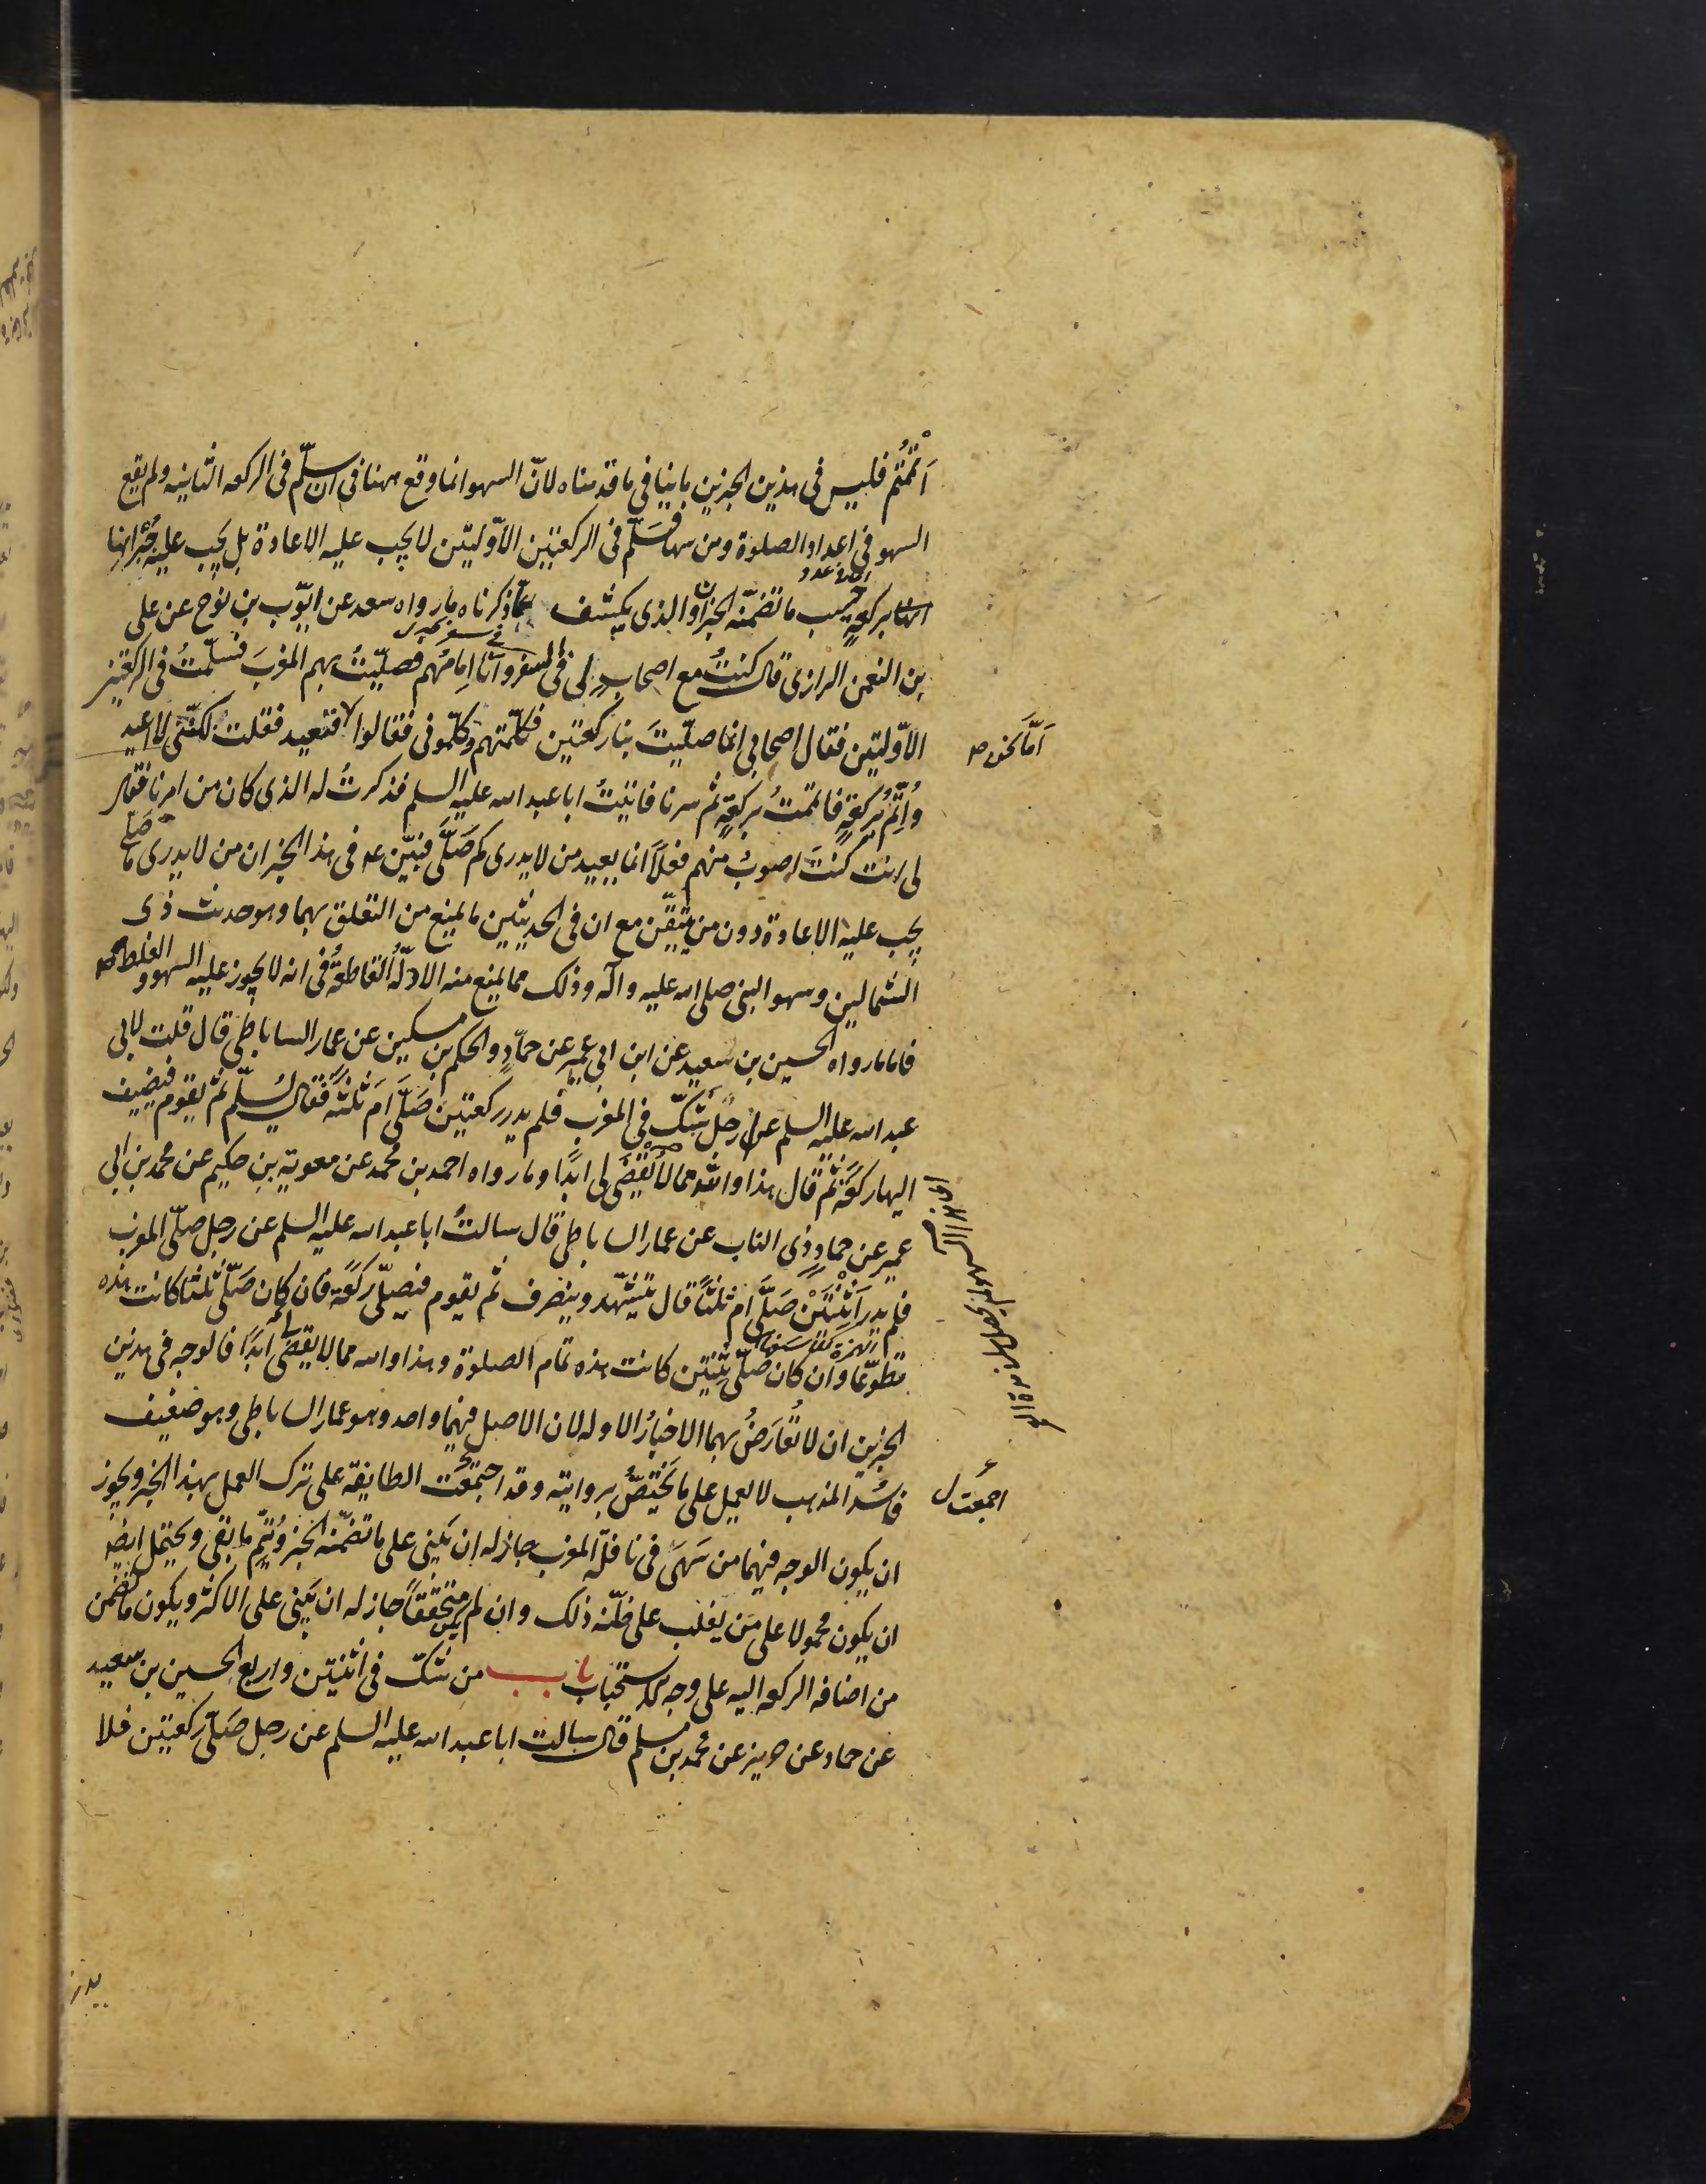 اَتْمَمْتُم فليس فى هذين الخبرين ما ينافي ما قدمناه لانّ السهو انما وقع ههنا فى ان سلّم فى الركعه الثانيه ولم يقع
السهو فى اعداد الصلوة ومن سها فسَلّم فى الركعتين الاوّليتين لا يجب عليه الاعادة بل يجب عليه جُبْرانها
بركعةٍ حسب ما تضمّنه الخبران والذى يكشف عمّا ذكرناه ما رواه سعد عن ايّوب بن نوح عن على
بن النعمن الرازى قال كنتُ مع اصحابٍ لى فى السفر وانا اِمامُهم فصلّيتُ بهم المغربَ فسلّمتُ فى الركعتين
الاوّليتين فقال اصحابى انما صلّيتَ بنا ركعتين فكلّمتهم وكلّمونى فقالوا فتعيد فقلت لكنّى لا اعيد
اَمّا نحن
واُتِمُّ بركعةٍ فاتممتُ بركعةٍ ثم سرنا فاتيتُ ابا عبد الله عليه السلم فذكرتُ له الذى كان من امرنا فقال
لى انت كنتَ اصوبَ منهم فعلاً انما يعيد من لا يدرى كم صَلَّى فبيّن ع فى هذا الخبر ان من لا يدرى ما صَلّى
يجب عليه الاعادة دون من تيقّن مع ان فى الحديثين ما يمنع من التعلق بهما وهو حديث ذى
الشمالين وسهو النبى صلى الله عليه وآله وذلك مما يمنع منه الادلّةُ القاطعةُ فى انه لا يجوز عليه السهو والغلط
فاما ما رواه الحسين بن سعيد عن ابن ابى عمير عن حمّادٍ والحكم بن مسكين عن عمار الساباطى قال قلت لابى
عبد الله عليه السلم عن رجل شكّ فى المغرب فلم يدر ركعتين صَلَّى اَم ثلثةً فقال يُسلّم ثم يقوم فيضيف
اليها ركعَةً ثم قال هذا والله مما لا يُقْضَى لى ابَدًا وما رواه احمد بن محمد عن معوية بن حكيم عن محمد بن ابى
عمير عن حمادٍ ذى الناب عن عمار الساباطى قال سالتُ ابا عبد الله عليه السلم عن رجل صلّى المغرب
فلم يدر اثْنَتَيْن صَلَّى ام ثلثًا قال يتشهّد وينصرف ثم يقوم فيصلّى ركعة فان كان صَلّى ثلثا كانت هذه
تطوّعًا وان كان صَلّى ثِنْتين كانت هذه تمام الصلوة وهذا والله مما لا يقضى لى ابَدًا فالوجه فى هذين
الخبرين ان لا نُعَارَضُ بهما الاخبارُ الاوله لان الاصل فيهما واحد وهو عمار الساباطى وهو ضعيف
فاسُد المذهب لا يعمل على ما يَختَصُّ بروايته وقد اجتمعَت الطايفة على ترك العمل بهذا الخبر ويجوز
اجمعَت ل
ان يكون الوجه فيهما من سَهَى فى نافلة المغرب جاز له ان يَبنى على ما تضمّنه الخبر ويُتمّ ما بقى ويحتمل ايضا
ان يكون محمولا على مَن يغلب على ظنّه ذلك وان لم يكن متحققًا جاز له ان يَبنى على الاكثر ويكون ما تضمن
من اضافه الركعه اليه على وجه الاستحباب باب من شكّ فى اثنتين واربع الحسين بن سعيد
عن حماد عن حريز عن محمد بن مسلم قال سالت ابا عبد الله عليه السلم عن رجل صَلّى ركعتين فلا
يدرى